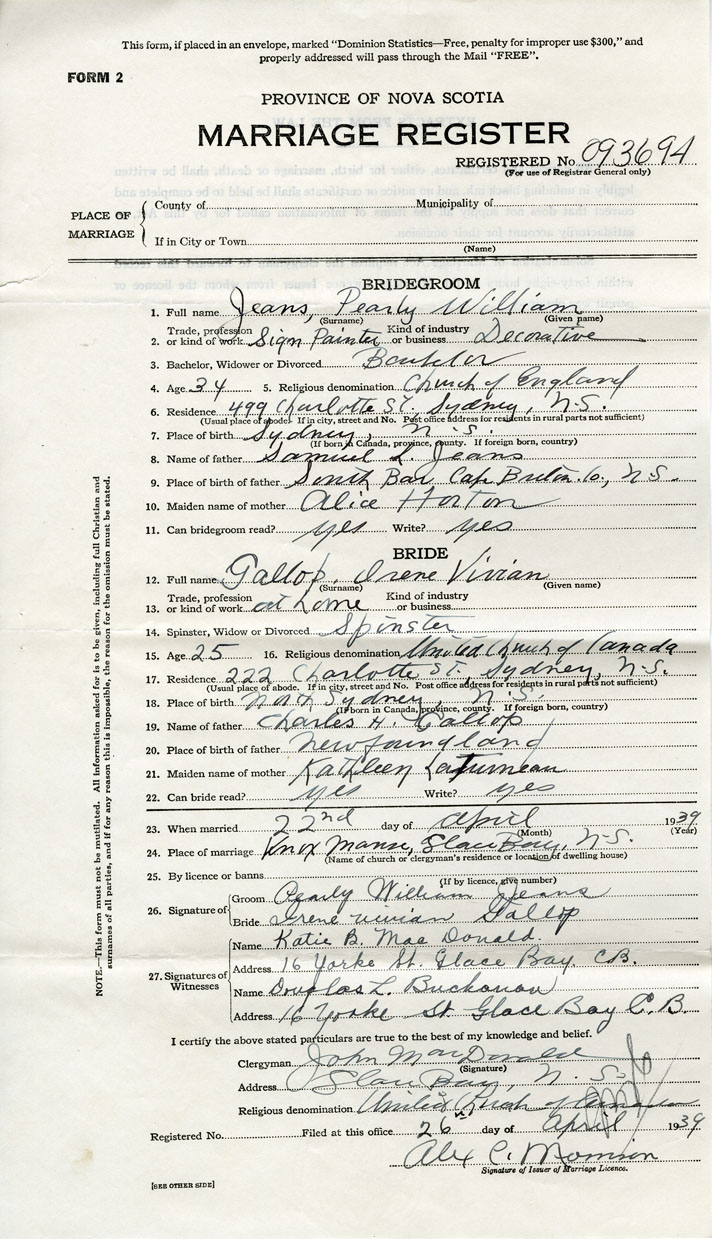 This form, if placed in an envelope, marked "Dominion Statistics—Free, penalty for improper use $300," and
properly addressed will pass through the Mail "FREE".
FORM 2
PROVINCE OF NOVA SCOTIA
MARRIAGE REGISTER
REGISTERED No. 093694
(For use of Registrar General only)
PLACE OF MARRIAGE
County of Municipality of
If in City or Town
(Name)
BRIDEGROOM
1. Full name Jeans, Pearly William
(Surname) (Given name)
2. Trade, profession or kind of work Sign Painter Kind of industry or business Decorative
3. Bachelor, Widower or Divorced Bachelor
4. Age 34 5. Religious denomination Church of England
6. Residence 499 Charlotte St., Sydney, N.S.
(Usual place of abode. If in city, street and No. Post office address for residents in rural parts not sufficient)
7. Place of birth Sydney, N.S.
(If born in Canada, province, county. If foreign born, country)
8. Name of father Samuel L. Jeans
9. Place of birth of father South Bar Cape Breton Co., N.S.
10. Maiden name of mother Alice Horton
11. Can bridegroom read? yes Write? yes
BRIDE
12. Full name Gallop, Irene Vivian
(Surname) (Given name)
13. Trade, profession or kind of work at home Kind of industry or business
14. Spinster, Widow or Divorced Spinster
15. Age 25 16. Religious denomination United Church of Canada
17. Residence 222 Charlotte St., Sydney, N.S.
(Usual place of abode. If in city, street and No. Post office address for residents in rural parts not sufficient)
18. Place of birth North Sydney, N.S.
(If born in Canada, province, county. If foreign born, country)
19. Name of father Charles H. Gallop
20. Place of birth of father Newfoundland
21. Maiden name of mother Kathleen
22. Can bride read? yes Write? yes
23. When married 22nd day of April 1939
(Month) (Year)
24. Place of marriage Knox Manse, Glace Bay, N.S.
(Name of church or clergyman's residence or location of dwelling house)
25. By licence or banns
(If by licence, give number)
26. Signature of
Groom Pearly William Jeans
Bride Irene Vivian Gallop
27. Signatures of Witnesses
Name Katie B. Mac Donald.
Address 16 Yorke St. Glace Bay, C.B.
Name Douglas L. Buchanan
Address 16 Yorke St Glace Bay C.B.
I certify the above stated particulars are true to the best of my knowledge and belief.
Clergyman John MacDonald
(Signature)
Address Glace Bay, N.S.
Religious denomination United Church of Canada
Registered No. Filed at this office 26 day of April 1939
Alex C. Morrison
Signature of Issuer of Marriage Licence.
[SEE OTHER SIDE]
NOTE.—This form must not be mutilated. All information asked for is to be given, including full Christian and
surnames of all parties, and if for any reason this is impossible, the reason for the omission must be stated.